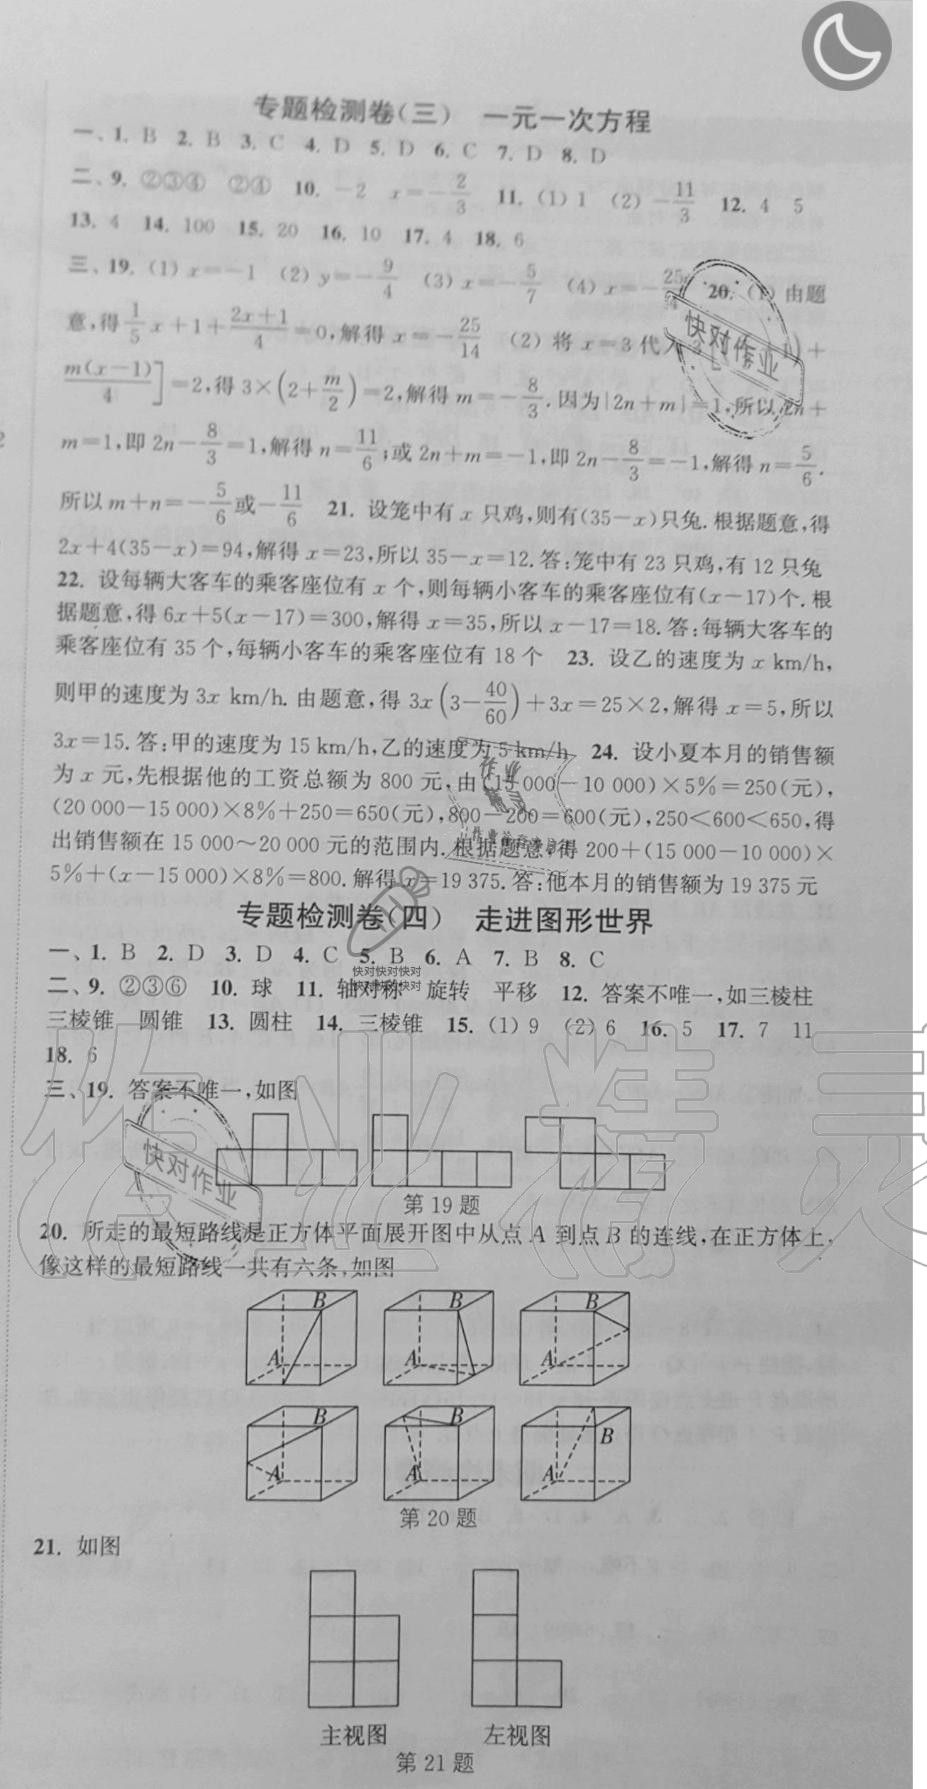 专题检测卷(三) 一元一次方程
一、1. B 2. B 3. C 4. D 5. D 6. C 7. D 8. D
二、9. ②③④ ②④ 10. －2 x＝－2/3 11. (1) 1 (2) －11/3 12. 4 5
13. 4 14. 100 15. 20 16. 10 17. 4 18. 6
三、19. (1) x＝－1 (2) y＝－9/4 (3) x＝－5/7 (4) x＝－25/4 20. (1) 由题
意,得1/5 x＋1＋(2x＋1)/4＝0,解得 x＝－25/14 (2) 将 x＝3 代入
m(x－1)/4]＝2,得 3×(2＋m/2)＝2,解得 m＝－8/3.因为|2n＋m|＝1,所以 2n＋
m＝1,即 2n－8/3＝1,解得 n＝11/6;或 2n＋m＝－1,即 2n－8/3＝－1,解得 n＝5/6.
所以 m＋n＝－5/6或－11/6 21. 设笼中有 x 只鸡,则有(35－x)只兔.根据题意,得
2x＋4(35－x)＝94,解得 x＝23,所以 35－x＝12.答:笼中有 23 只鸡,有 12 只兔
22. 设每辆大客车的乘客座位有 x 个,则每辆小客车的乘客座位有(x－17)个.根
据题意,得 6x＋5(x－17)＝300,解得 x＝35,所以 x－17＝18.答:每辆大客车的
乘客座位有 35 个,每辆小客车的乘客座位有 18 个 23. 设乙的速度为 x km/h,
则甲的速度为 3x km/h.由题意,得 3x(3－40/60)＋3x＝25×2,解得 x＝5,所以
3x＝15.答:甲的速度为 15 km/h,乙的速度为 5 km/h 24. 设小夏本月的销售额
为 x 元,先根据他的工资总额为 800 元,由(15 000－10 000)×5%＝250(元),
(20 000－15 000)×8%＋250＝650(元),800－200＝600(元),250＜600＜650,得
出销售额在 15 000～20 000 元的范围内.根据题意,得 200＋(15 000－10 000)×
5%＋(x－15 000)×8%＝800.解得 x＝19 375.答:他本月的销售额为 19 375 元
专题检测卷(四) 走进图形世界
一、1. B 2. D 3. D 4. C 5. B 6. A 7. B 8. C
快对快对快对
快对快对快对
二、9. ②③⑥ 10. 球 11. 轴对称 旋转 平移 12. 答案不唯一,如三棱柱
三棱锥 圆锥 13. 圆柱 14. 三棱锥 15. (1) 9 (2) 6 16. 5 17. 7 11
18. 6
三、19. 答案不唯一,如图
第 19 题
20. 所走的最短路线是正方体平面展开图中从点 A 到点 B 的连线,在正方体上,
像这样的最短路线一共有六条,如图
B B B
A A A
B B B
A A A
第 20 题
21. 如图
主视图 左视图
第 21 题
快对作业
快对作业
作业精灵